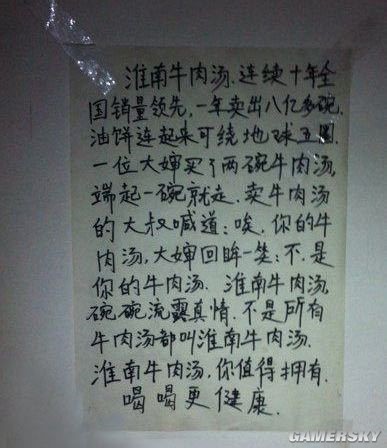 淮南牛肉汤.连续十年全
国销量领先,一年卖出八亿多碗.
油饼连起来可绕地球五圈.
一位大婶买了两碗牛肉汤,
端起一碗就走.卖牛肉汤
的大叔喊道:唉,你的牛
肉汤,大婶回眸一笑:不.是
你的牛肉汤.淮南牛肉汤,
碗碗流露真情.不是所有
牛肉汤都叫淮南牛肉汤.
淮南牛肉汤,你值得拥有.
喝喝更健康.
GAMERSKY